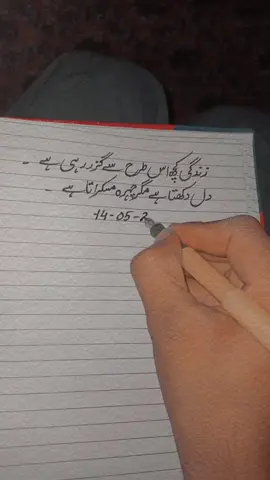 زندگی کچھ اس طرح سے گزر رہی ہے ۔
دل دکھتا ہے مگر چہرہ مسکراتا ہے ۔
14-05-2